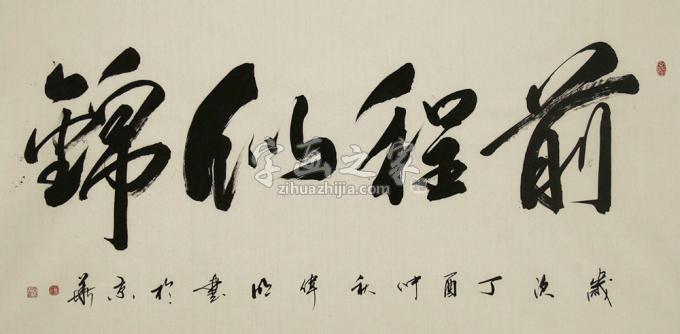 前程似锦
岁次丁酉仲秋伟明书于京华
字画之家
zihuazhijia.com